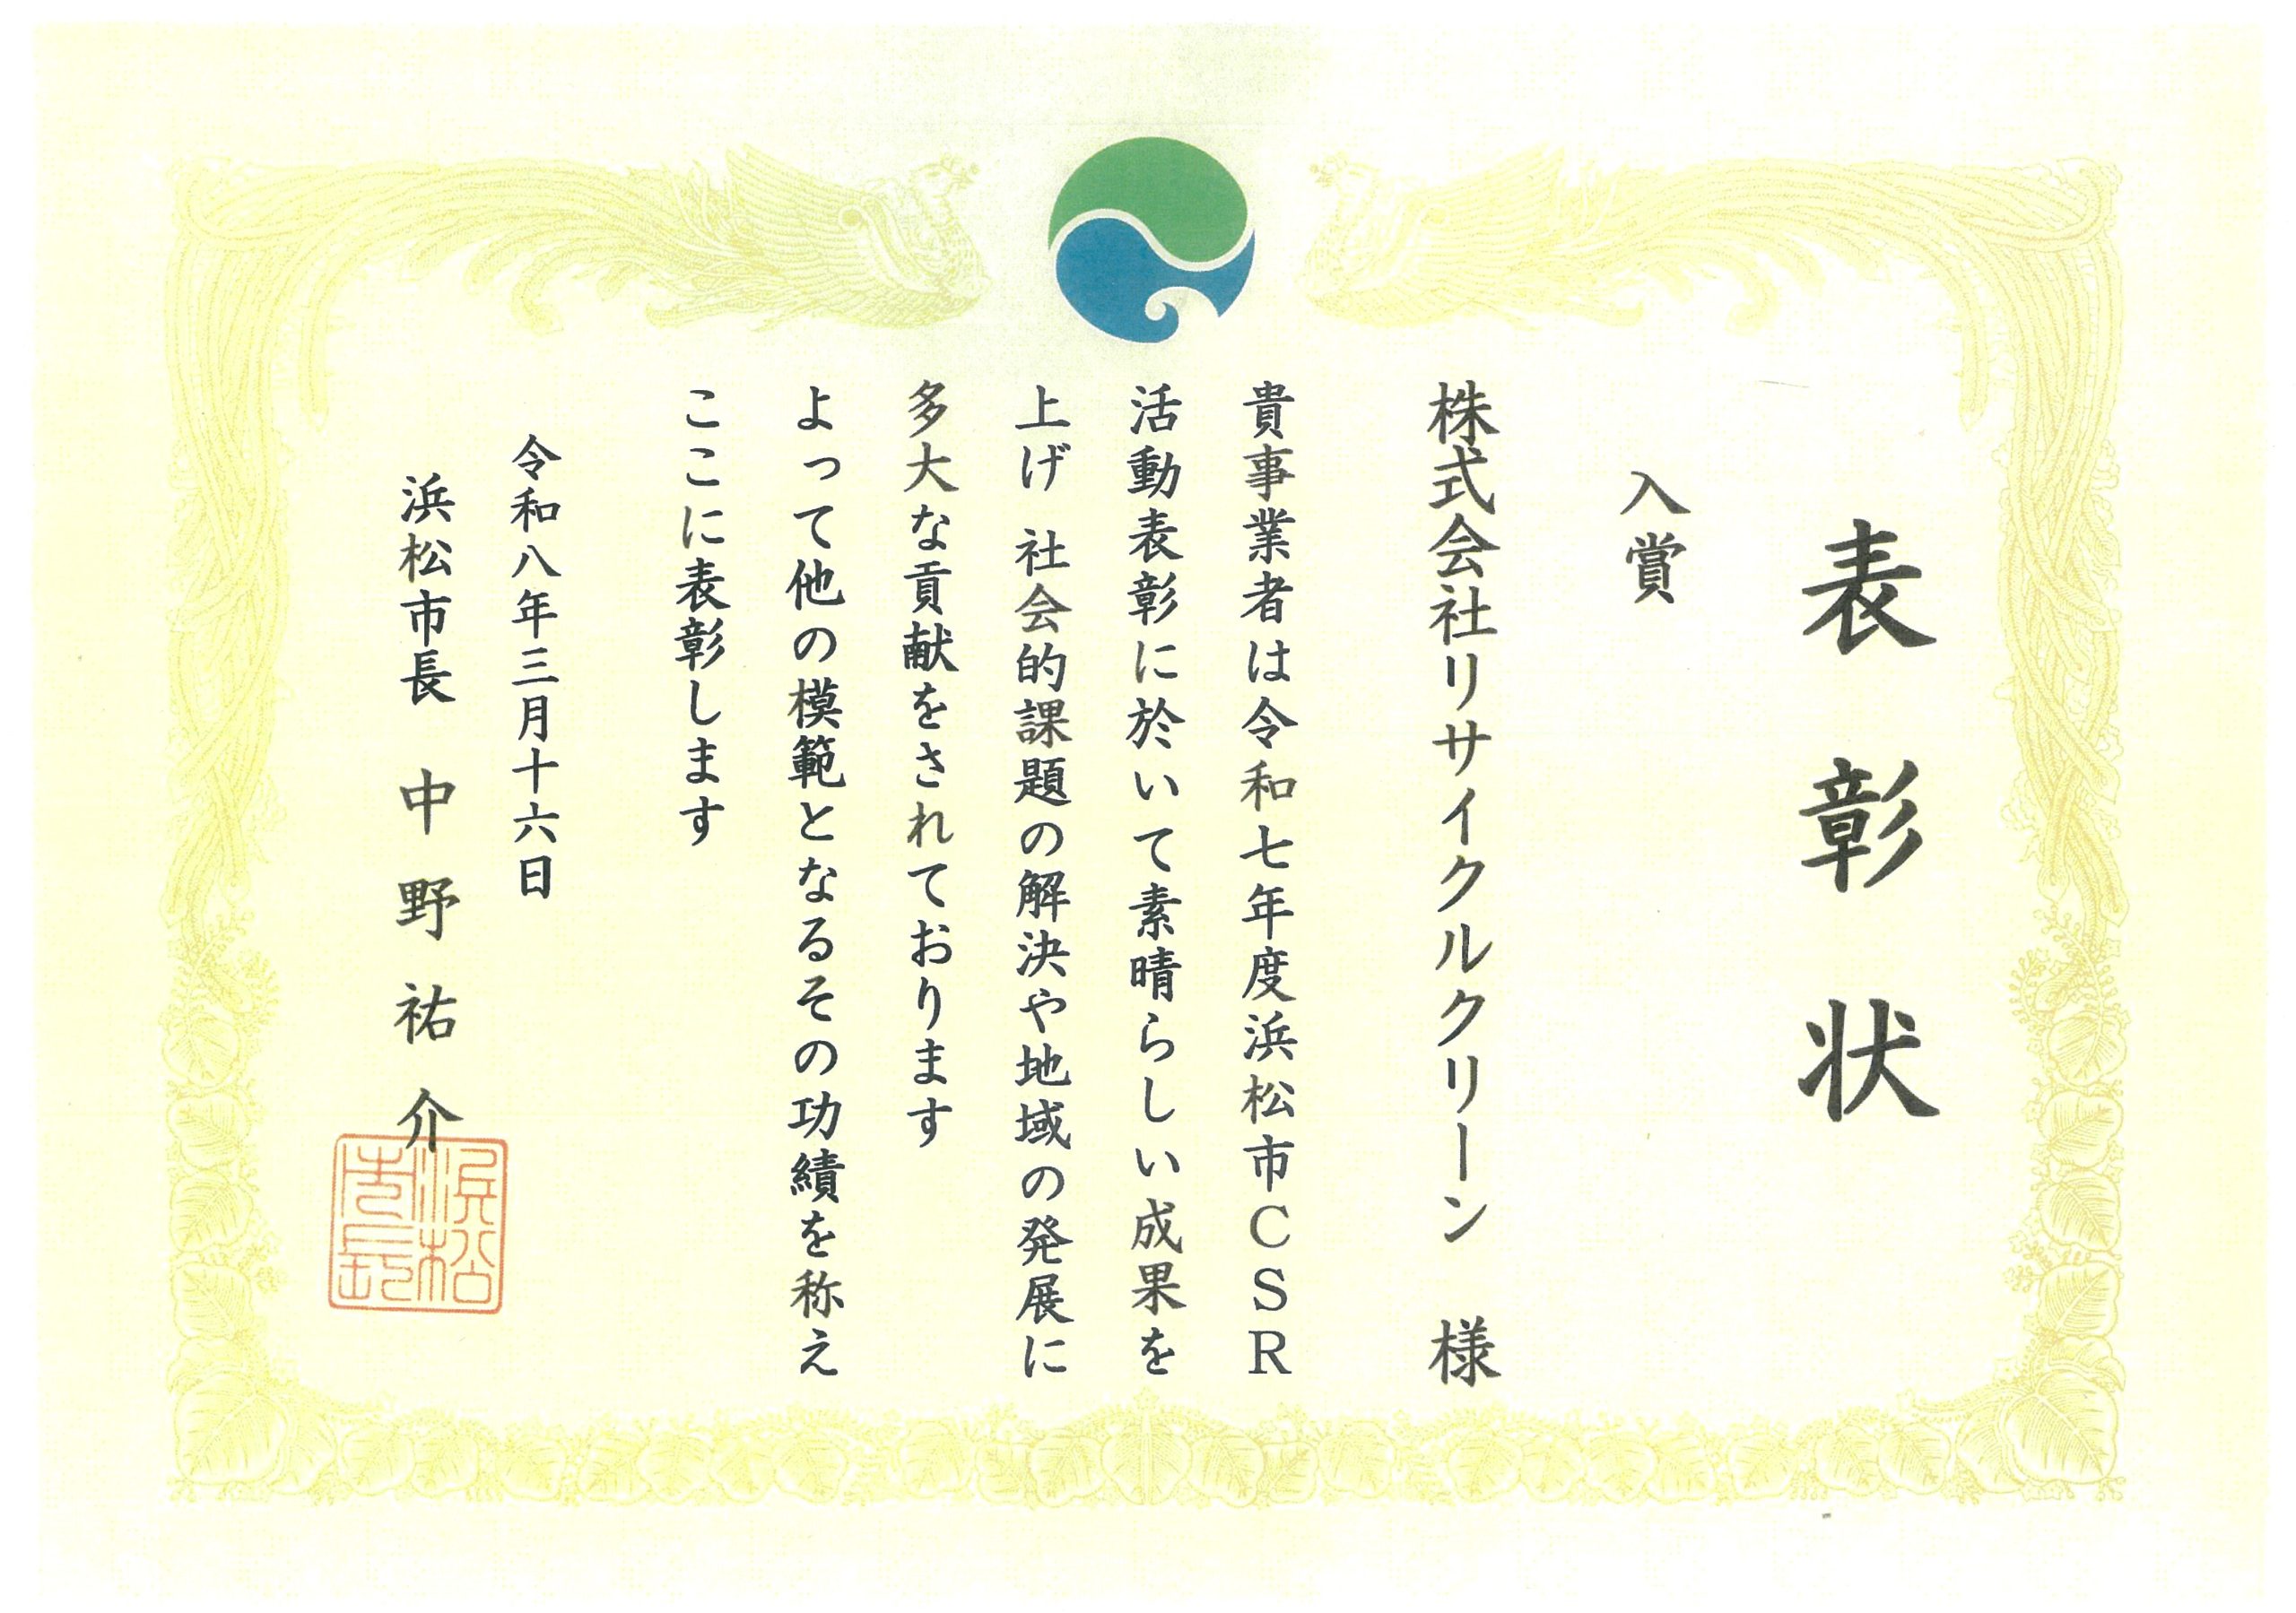 表彰状
入賞
株式会社リサイクルクリーン 様
貴事業者は令和七年度浜松市CSR
活動表彰に於いて素晴らしい成果を
上げ 社会的課題の解決や地域の発展に
多大な貢献をされております
よって他の模範となるその功績を称え
ここに表彰します
令和八年三月十六日
浜松市長 中野祐介
浜松
市長